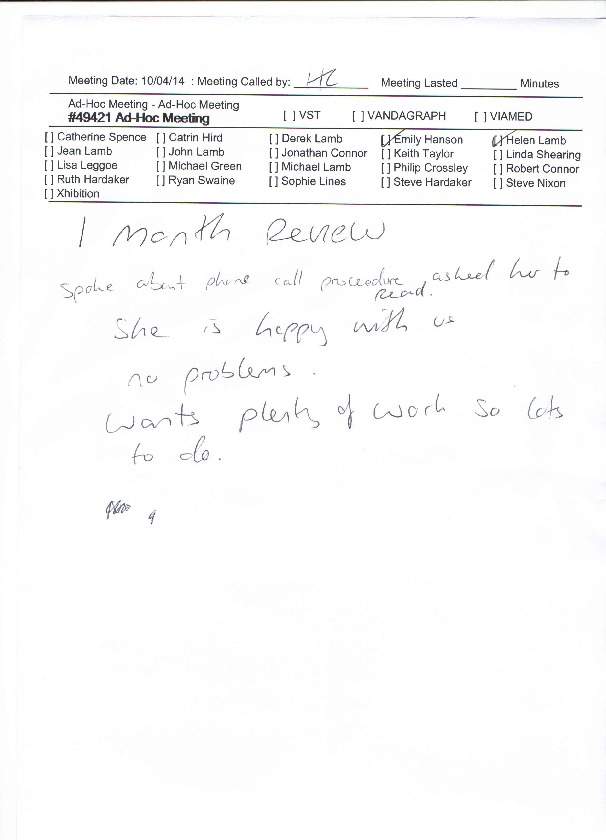 Meeting Date: 10/04/14 : Meeting Called by: HL Meeting Lasted ________ Minutes
Ad-Hoc Meeting - Ad-Hoc Meeting
#49421 Ad-Hoc Meeting [ ] VST [ ] VANDAGRAPH [ ] VIAMED
[ ] Catherine Spence [ ] Catrin Hird [ ] Derek Lamb [✓] Emily Hanson [✓] Helen Lamb
[ ] Jean Lamb [ ] John Lamb [ ] Jonathan Connor [ ] Keith Taylor [ ] Linda Shearing
[ ] Lisa Leggoe [ ] Michael Green [ ] Michael Lamb [ ] Philip Crossley [ ] Robert Connor
[ ] Ruth Hardaker [ ] Ryan Swaine [ ] Sophie Lines [ ] Steve Hardaker [ ] Steve Nixon
[ ] Xhibition
1 Month Review
Spoke about phone call proceedure asked her to
read.
She is happy with us
no problems.
Wants plenty of work so lots
to do.